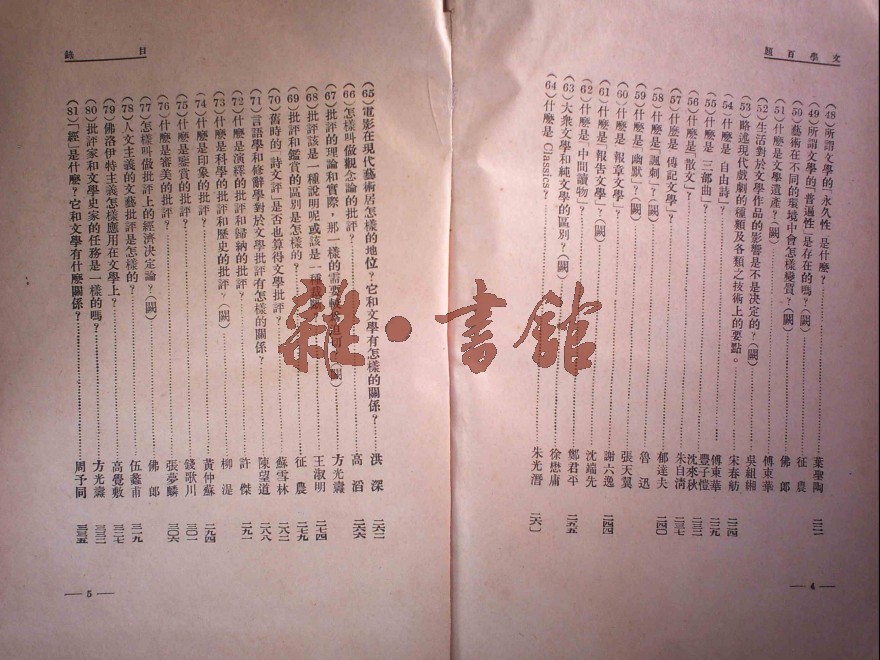 文學百題
(48)「所謂文學的「永久性」是什麼?……葉聖陶 二二一
(49)所謂文學的「普遍性」是存在的嗎?(闕)……征農
(50)藝術在不同的環境中會怎樣變質?(闕)……佛郎
(51)什麼是文學遺產?(闕)……傅東華
(52)生活對於文學作品的影響是不是決定的?(闕)……吳組緗
(53)略述現代戲劇的種類及各類之技術上的要點。……宋春舫 二二四
(54)什麼是「自由詩」?……傅東華
(55)什麼是「三部曲」?……豐子愷
(56)什麼是「散文」?……沈來秋
(57)什麼是「傳記文學」?……朱自清
(58)什麼是「諷刺」?(闕)……郁達夫 二四〇
(59)什麼是「幽默」?(闕)……魯迅
(60)什麼是「報章文學」?……張天翼
(61)什麼是「報告文學」?(闕)……謝六逸
(62)什麼是「中間讀物」?……沈端先
(63)大衆文學和純文學的區別?(闕)……鄭君平 二五五
(64)什麼是 Classics?……徐懋庸
朱光潛 二六〇
— 4 —
目錄
(65)電影在現代藝術居怎樣的地位?它和文學有怎樣的關係?……洪深 二六二
(66)怎樣叫做觀念論的批評?……高滔 二六六
(67)批評的理論和實際,那一樣的需要……(闕)……方光燾
(68)批評該是一種說明呢或該是一種……王淑明 二七四
(69)批評和鑑賞的區別是怎樣的?……征農 二七九
(70)舊時的「詩文評」是否也算得文學批評?……蘇雪林 二八二
(71)言語學和修辭學對於文學批評有怎樣的關係?……陳望道 二八八
(72)什麼是演繹的批評和歸納的批評?……許傑 二九一
(73)什麼是科學的批評和歷史的批評?(闕)……柳湜
(74)什麼是印象的批評?……黃仲蘇 二九四
(75)什麼是鑒賞的批評?……錢歌川 三〇一
(76)什麼是審美的批評?……張夢麟 三〇六
(77)怎樣叫做批評上的經濟決定論?(闕)……佛郎
(78)人文主義的文藝批評是怎樣的?……伍蠡甫 三一九
(79)佛洛伊特主義怎樣應用在文學上?……高覺敷 三二七
(80)批評家和文學史家的任務是一樣的嗎?……方光燾 三三二
(81)「經」是什麼?它和文學有什麼關係?……周予同 三三五
— 5 —
雜·書館